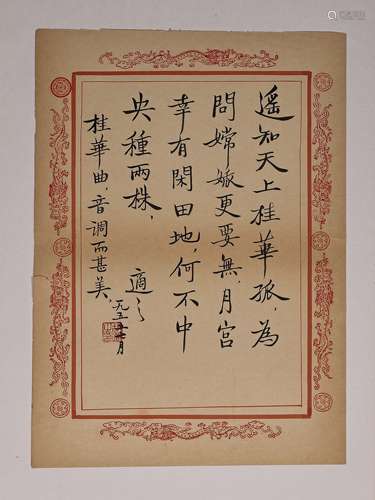 遥知天上桂華孤，為
問嫦娥更要無，月宮
幸有閑田地，何不中
央種兩株，
桂華曲，音調而甚美，
適之